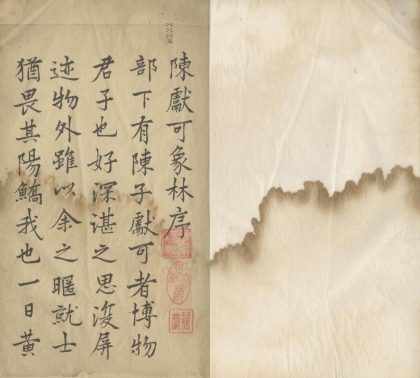 陳獻可象林序
部下有陳子獻可者博物
君子也好深湛之思復屏
迹物外雖以余之暱就士
猶畏其陽鱎我也一日黄